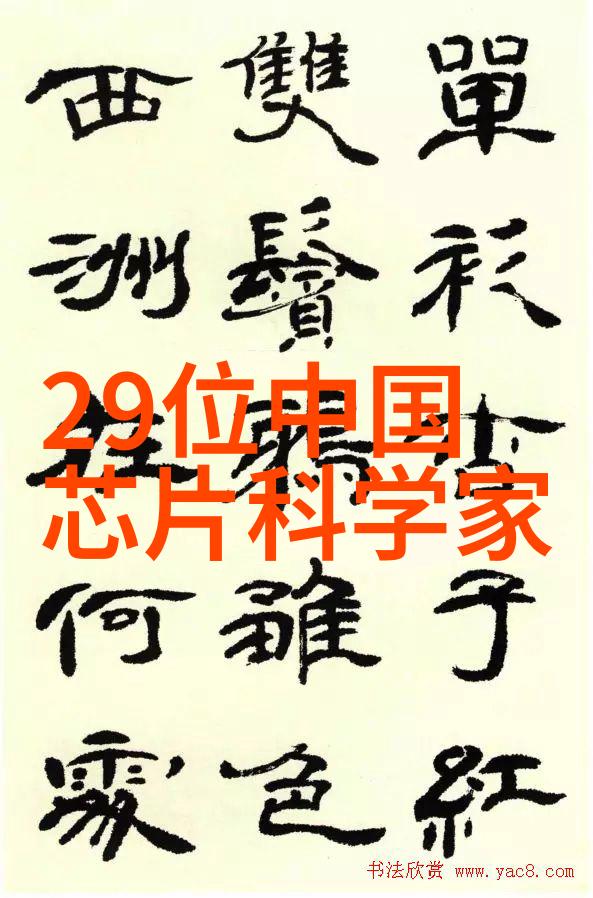 單衫杏子紅
雙鬢鴉雛色
西洲在何處
29位中国
芯片科学家
书法欣赏 www.yac8.com